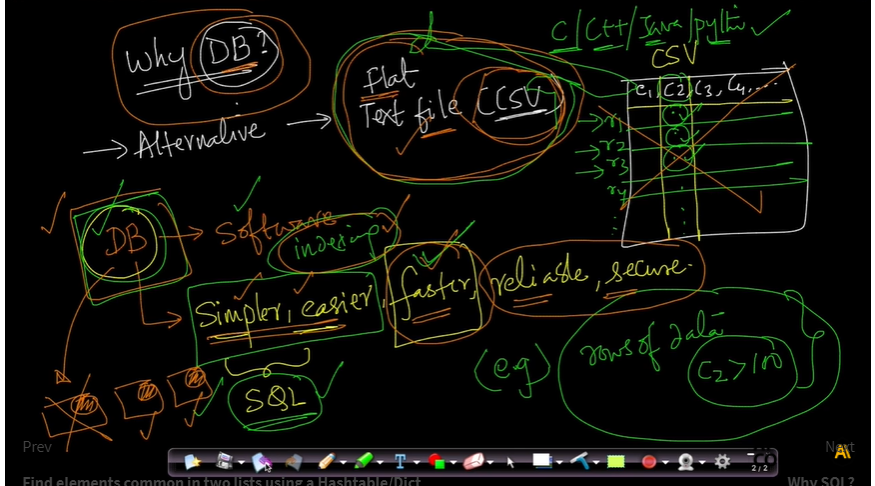 Why DB?
→ Alternative →
Flat
Text file (CSV)
C/C++/Java/python
CSV
C1, C2, C3, C4, ...
→ r1
→ r2
→ r3
r4
DB → Software
indexing
simpler, easier, faster, reliable, secure.
SQL
(e.g)
rows of data
C2 > 100
Prev
Next
T
2 / 2
Find elements common in two lists using a Hashtable/Dict
Why SQL?